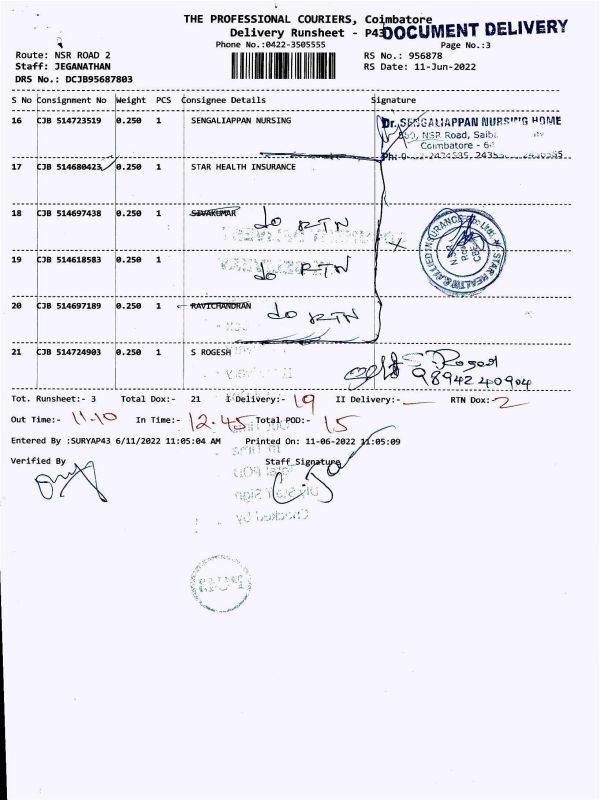 THE PROFESSIONAL COURIERS, Coimbatore
Delivery Runsheet - P43
DOCUMENT DELIVERY
Phone No.:0422-3505555
Page No.:3
Route: NSR ROAD 2
RS No.: 956878
Staff: JEGANATHAN
RS Date: 11-Jun-2022
DRS No.: DCJB95687803
S No Consignment No Weight PCS Consignee Details Signature
16 CJB 514723519 0.250 1 SENGALIAPPAN NURSING
Dr. SENGALIAPPAN NURSING HOME
NSR Road, Saiba
Coimbatore - 6
17 CJB 514680423 0.250 1 STAR HEALTH INSURANCE
18 CJB 514697438 0.250 1 SIVAKUMAR do RTN
STAR HEALTH & ALLIED INSURANCE Co. Ltd.
19 CJB 514618583 0.250 1 do RTN
20 CJB 514697189 0.250 1 RAVICHANDRAN do RTN
21 CJB 514724903 0.250 1 S ROGESH
98942 40904
Tot. Runsheet:- 3 Total Dox:- 21 I Delivery:- 19 II Delivery:- — RTN Dox:- 2
Out Time:- 11.10 In Time:- 12.45 Total POD:- 15
Entered By :SURYAP43 6/11/2022 11:05:04 AM Printed On: 11-06-2022 11:05:09
Verified By Staff Signature